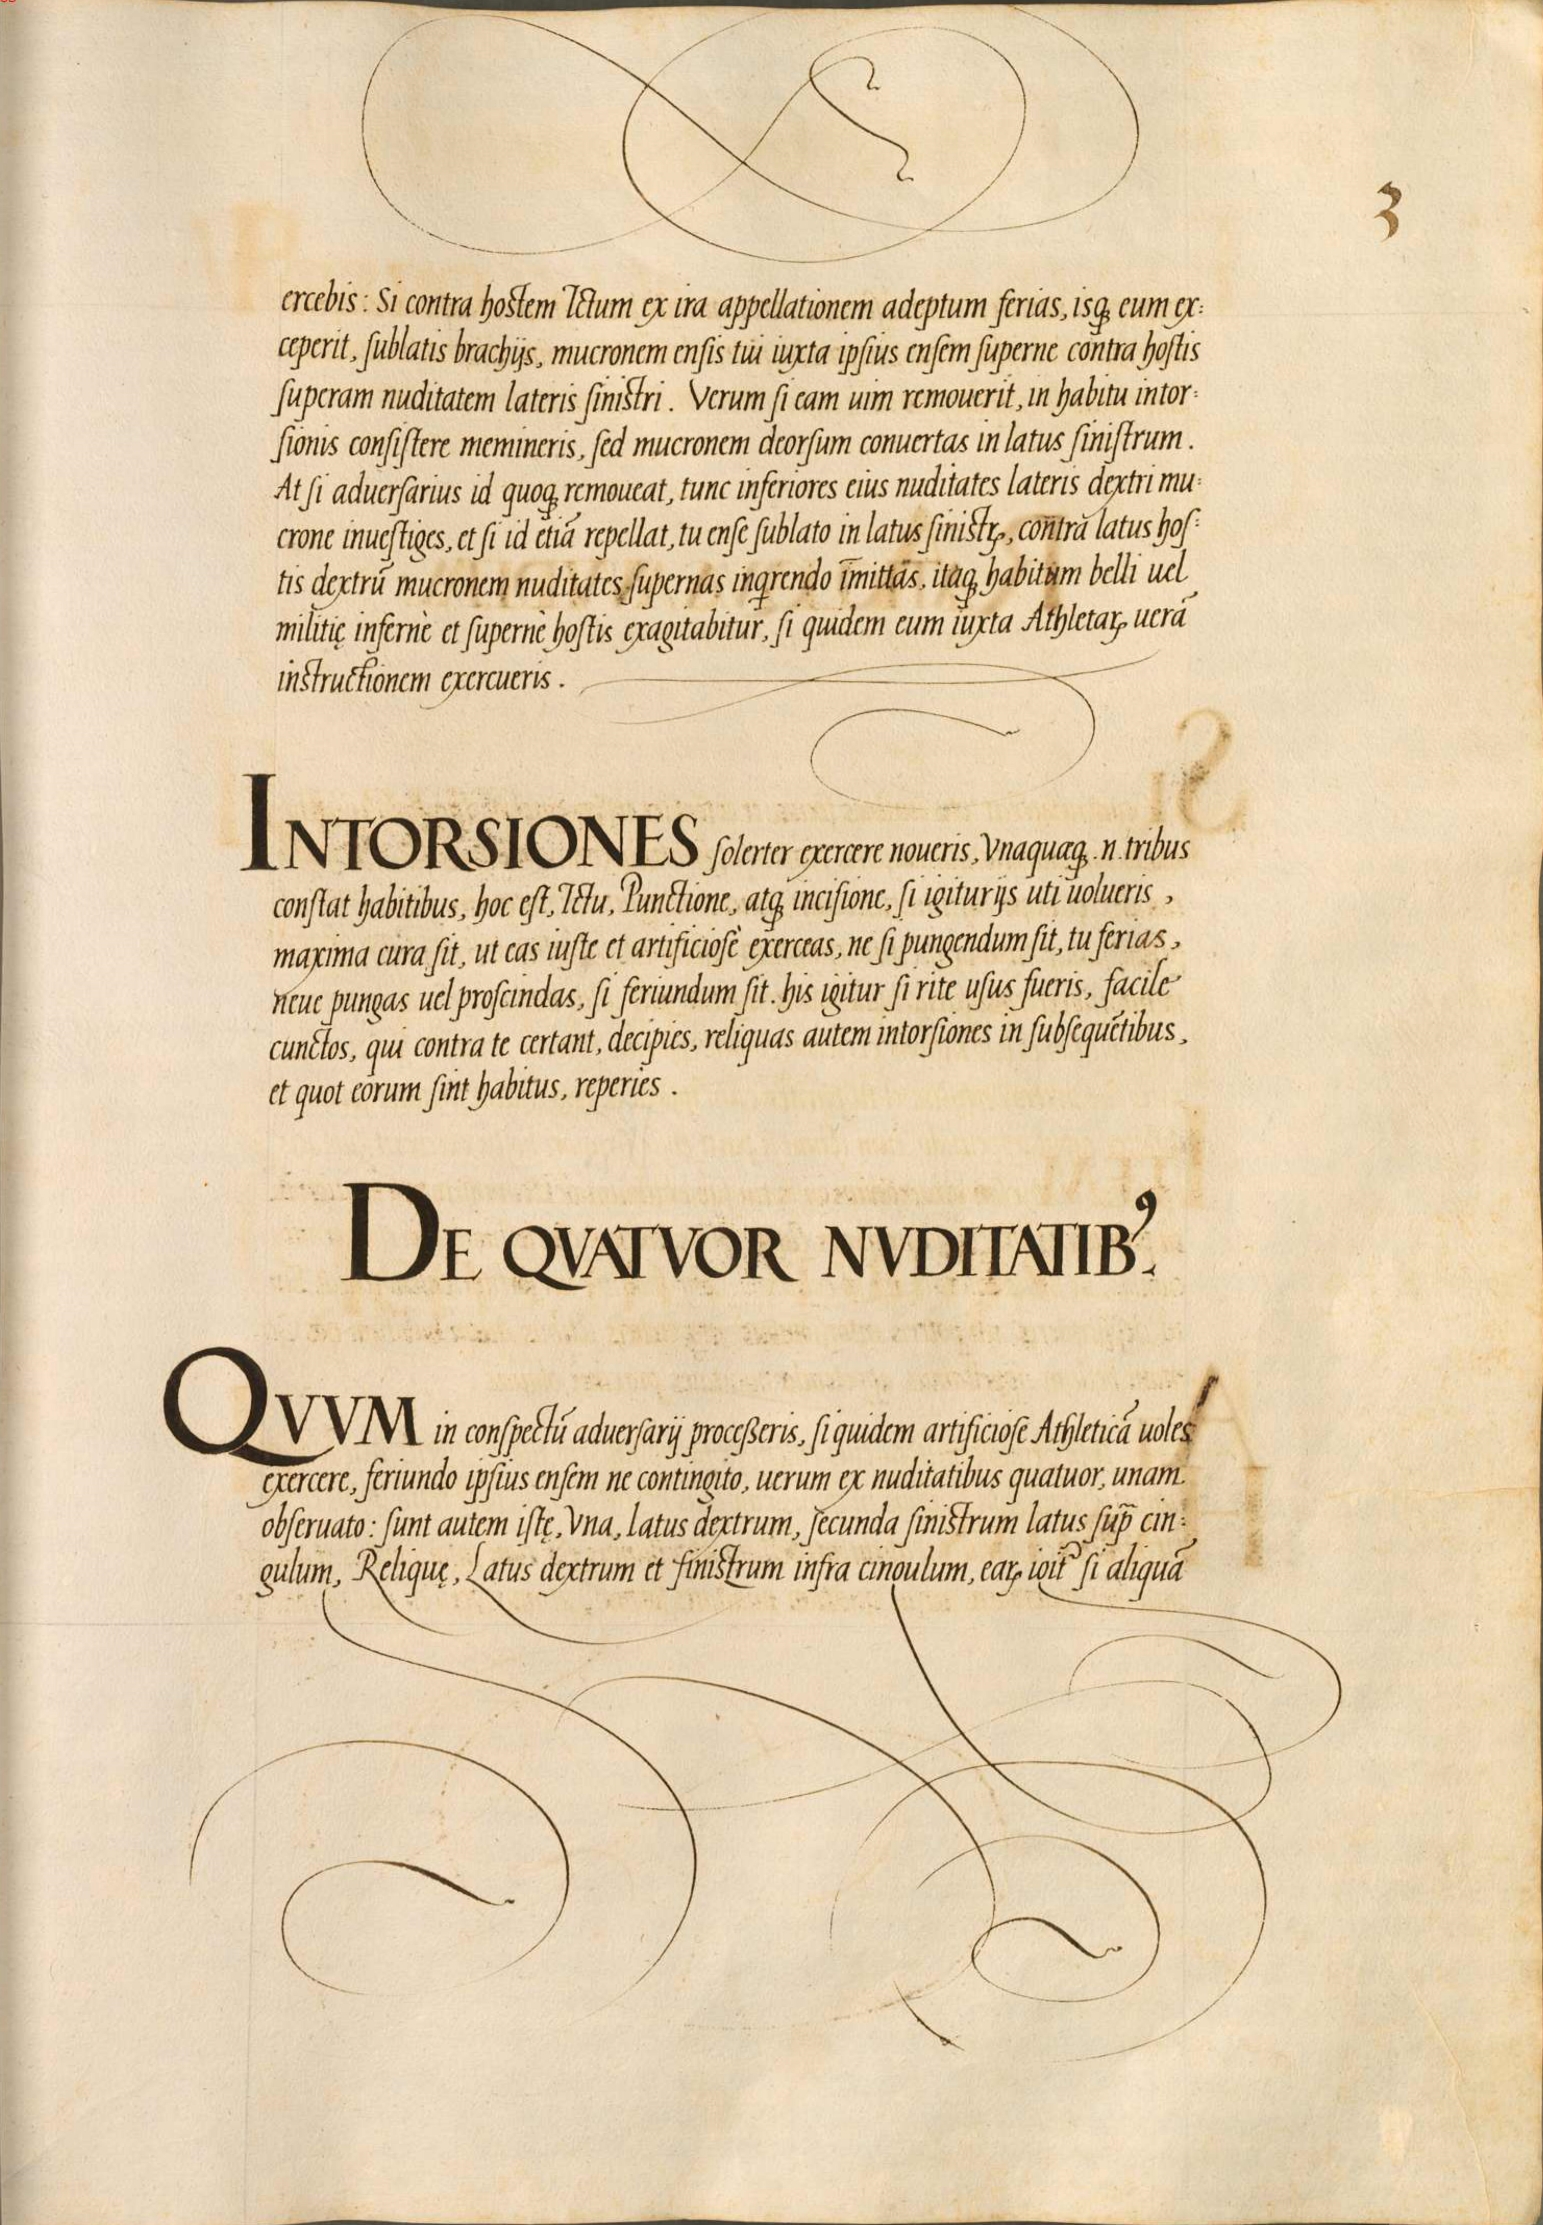 3
ercebis: Si contra hostem Ictum ex ira appellationem adeptum ferias, isq; eum ex:
ceperit, sublatis brachijs, mucronem ensis tui iuxta ipsius ensem superne contra hostis
superam nuditatem lateris sinistri. Verum si eam uim remouerit, in habitu intor:
sionis consistere memineris, sed mucronem deorsum conuertas in latus sinistrum.
At si aduersarius id quoq; remoueat, tunc inferiores eius nuditates lateris dextri mu:
crone inuestiges, et si id etiã repellat, tu ense sublato in latus sinistrꝫ, contra latus hos:
tis dextrũ mucronem nuditates supernas inq̃rendo ĩmittas, itaq; habitum belli uel
militię infernè et supernè hostis exagitabitur, si quidem eum iuxta Athletaꝝ uerã
instructionem exercueris.
INTORSIONES solerter exercere noueris, Vnaquæq; .n. tribus
constat habitibus, hoc est, Ictu, Punctione, atq; incisione, si igitur ijs uti uolueris,
maxima cura sit, ut eas iuste et artificiosè exerceas, ne si pungendum sit, tu ferias,
neue pungas uel proscindas, si feriundum sit. his igitur si rite usus fueris, facile
cunctos, qui contra te certant, decipies, reliquas autem intorsiones in subsequẽtibus,
et quot eorum sint habitus, reperies.
DE QVATVOR NVDITATIBꝰ.
QVVM in conspectũ aduersarij proceßeris, si quidem artificiose Athleticã uoles
exercere, feriundo ipsius ensem ne contingito, uerum ex nuditatibus quatuor, unam
obseruato: sunt autem istę, Vna, latus dextrum, secunda sinistrum latus sup̃ cin:
gulum, Relique̜, Latus dextrum et sinistrum infra cingulum, eaꝝ igit̃ si aliquã